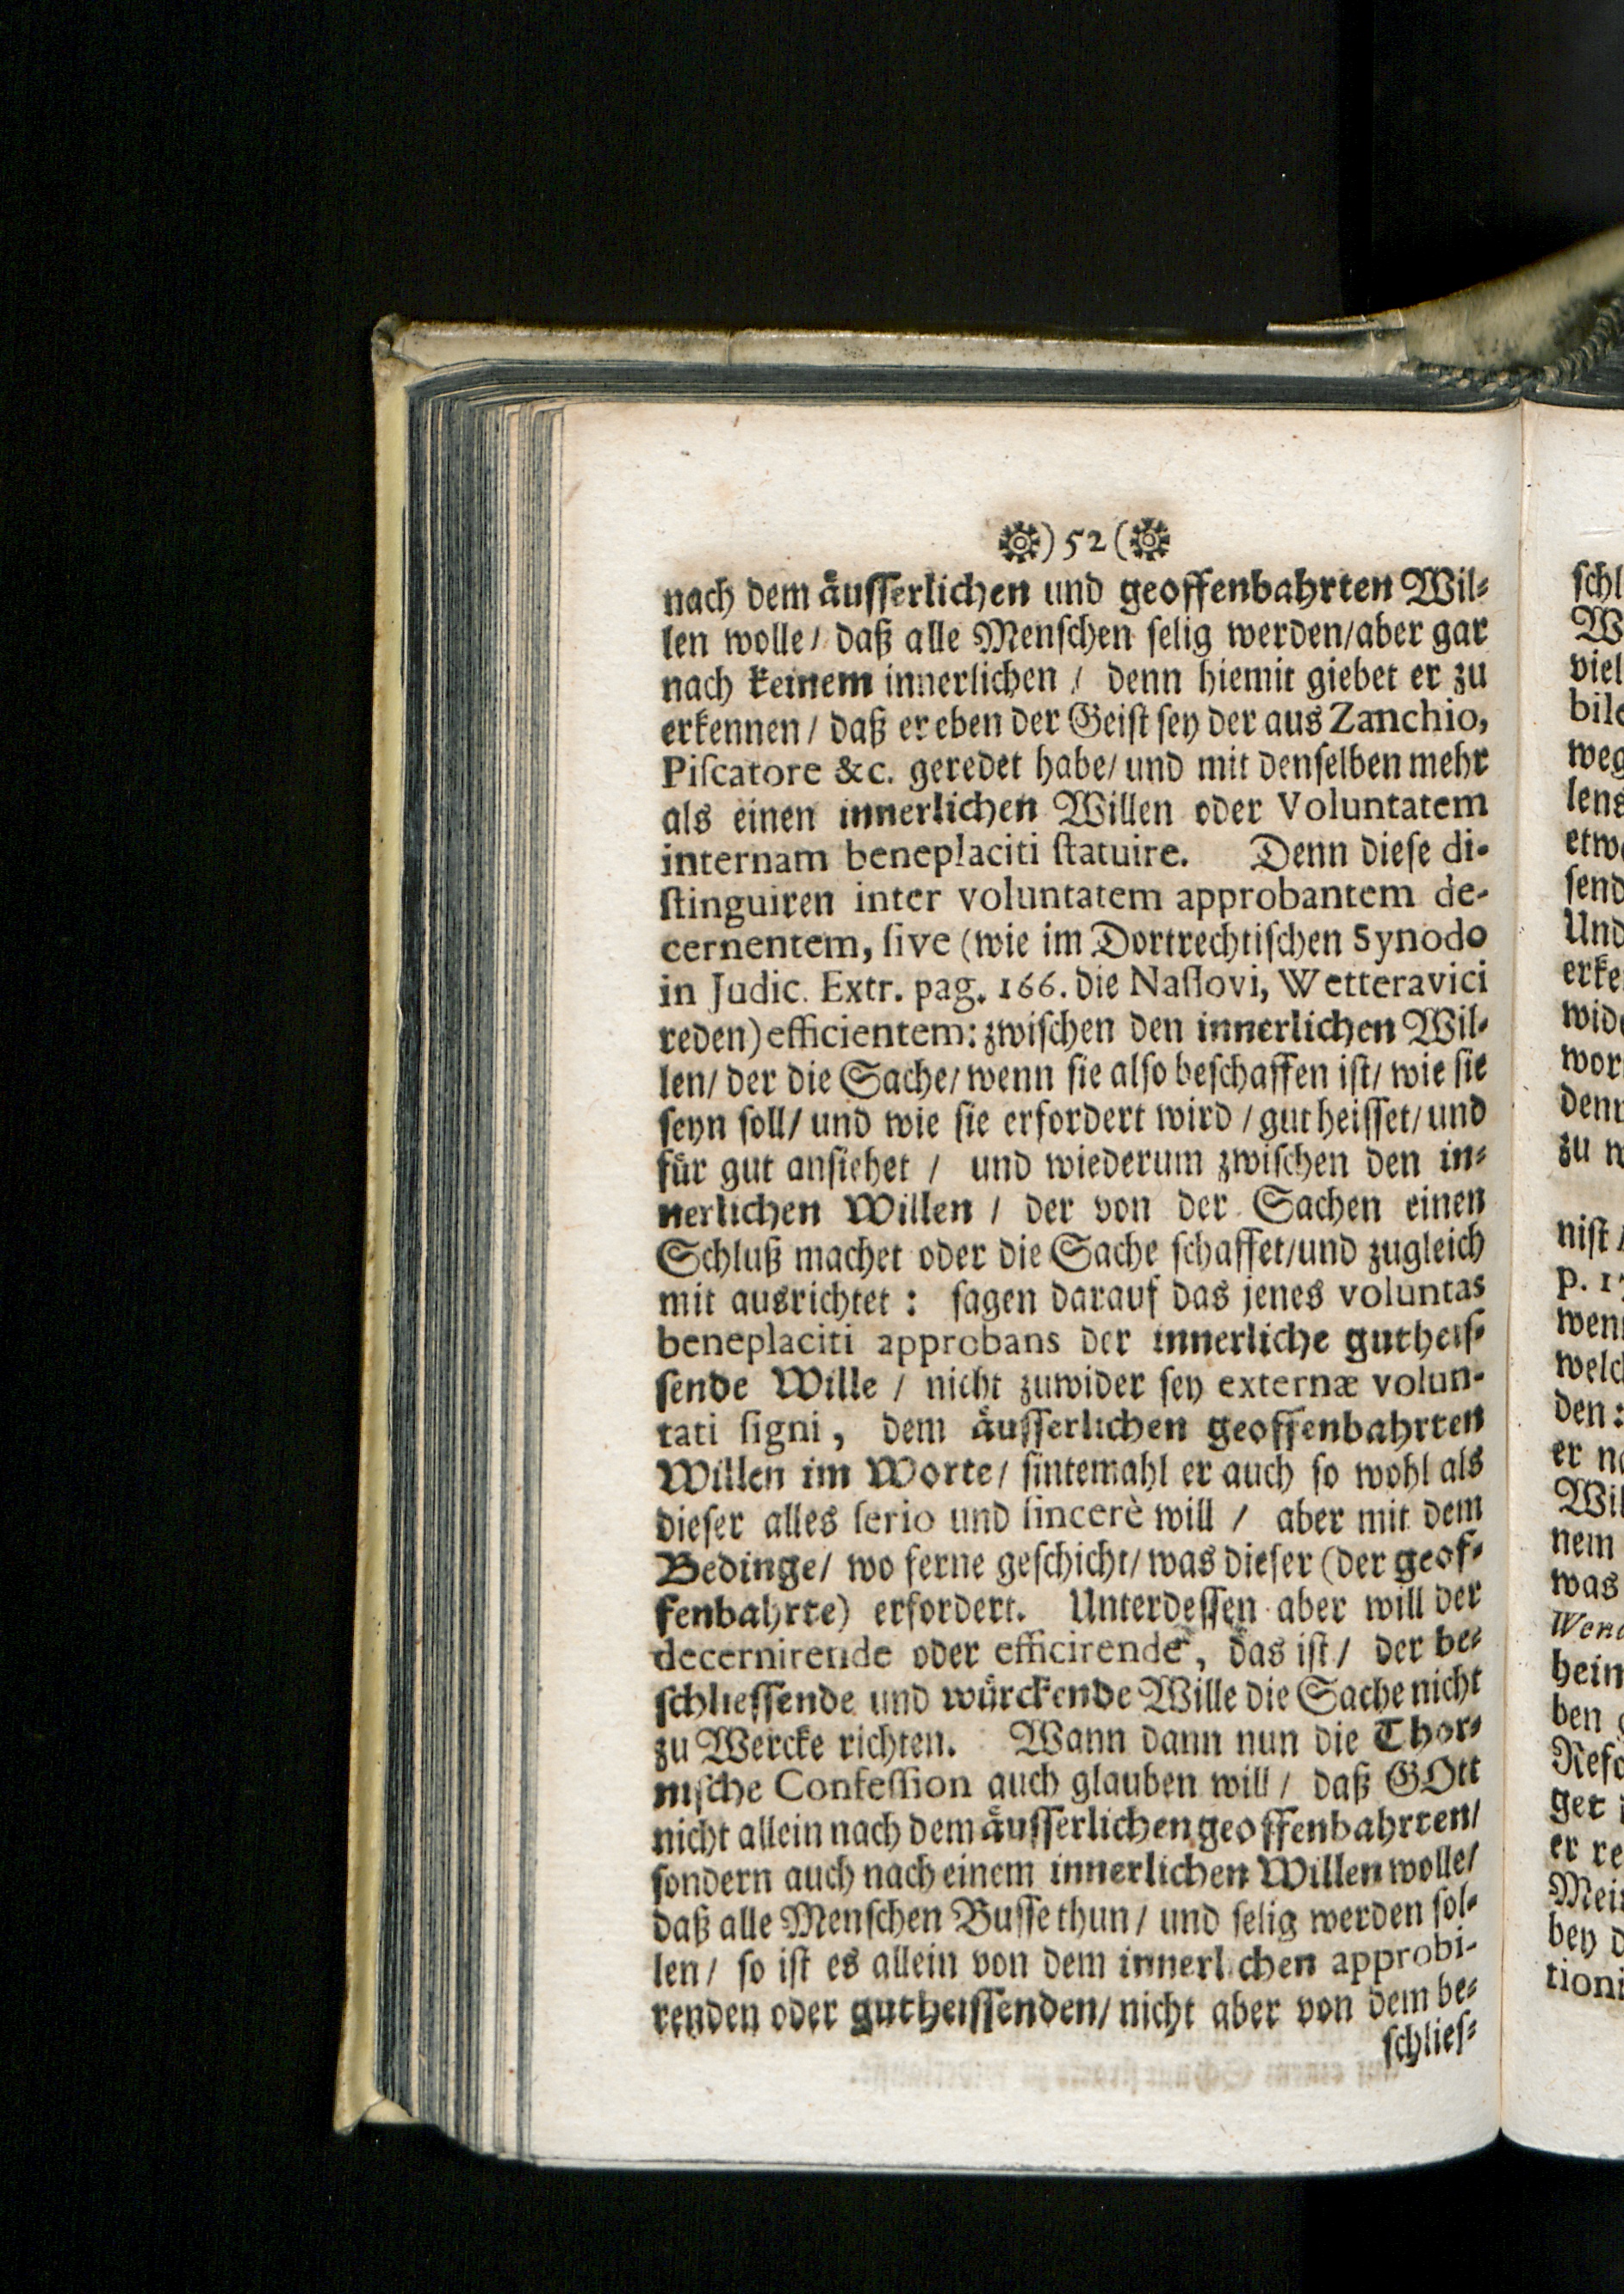 )52(
nach dem äuſſerlichen und geoffenbahrten Wil⸗
len wolle/ daß alle Menſchen ſelig werden/aber gar
nach keinem innerlichen / denn hiemit giebet er zu
erkennen/ daß er eben der Geiſt ſey der aus Zanchio,
Piſcatore &c. geredet habe/ und mit denſelben mehr
als einen innerlichen Willen oder Voluntatem
internam beneplaciti ſtatuire. Denn dieſe di-
ſtinguiren inter voluntatem approbantem de-
cernentem, ſive (wie im Dortrechtiſchen Synodo
in Judic. Extr. pag. 166. die Naſſovi, Wetteravici
reden) efficientem: zwiſchen den innerlichen Wil⸗
len/ der die Sache/ wenn ſie alſo beſchaffen iſt/ wie ſie
ſeyn ſoll/ und wie ſie erfordert wird / gut heiſſet/ und
für gut anſiehet / und wiederum zwiſchen den in⸗
nerlichen Willen / der von der Sachen einen
Schluß machet oder die Sache ſchaffet/und zugleich
mit ausrichtet : ſagen darauf das jenes voluntas
beneplaciti approbans der innerliche gutheiſ⸗
ſende Wille / nicht zuwider ſey externæ volun-
tati ſigni, dem äuſſerlichen geoffenbahrten
Willen im Worte/ ſintemahl er auch ſo wohl als
dieſer alles ſerio und ſincerè will / aber mit dem
Bedinge/ wo ferne geſchicht/ was dieſer (der geof⸗
fenbahrte) erfordert. Unterdeſſen aber will der
decernirende oder efficirende, das iſt/ der be⸗
ſchlieſſende und würckende Wille die Sache nicht
zu Wercke richten. Wann dann nun die Thor⸗
niſche Confeſſion auch glauben will / daß GOtt
nicht allein nach dem äuſſerlichen geoffenbahrten/
ſondern auch nach einem innerlichen Willen wolle/
daß alle Menſchen Buſſe thun / und ſelig werden ſol⸗
len / ſo iſt es allein von dem innerlichen approbi-
renden oder gutheiſſenden/ nicht aber von dem be⸗
ſchlieſ⸗